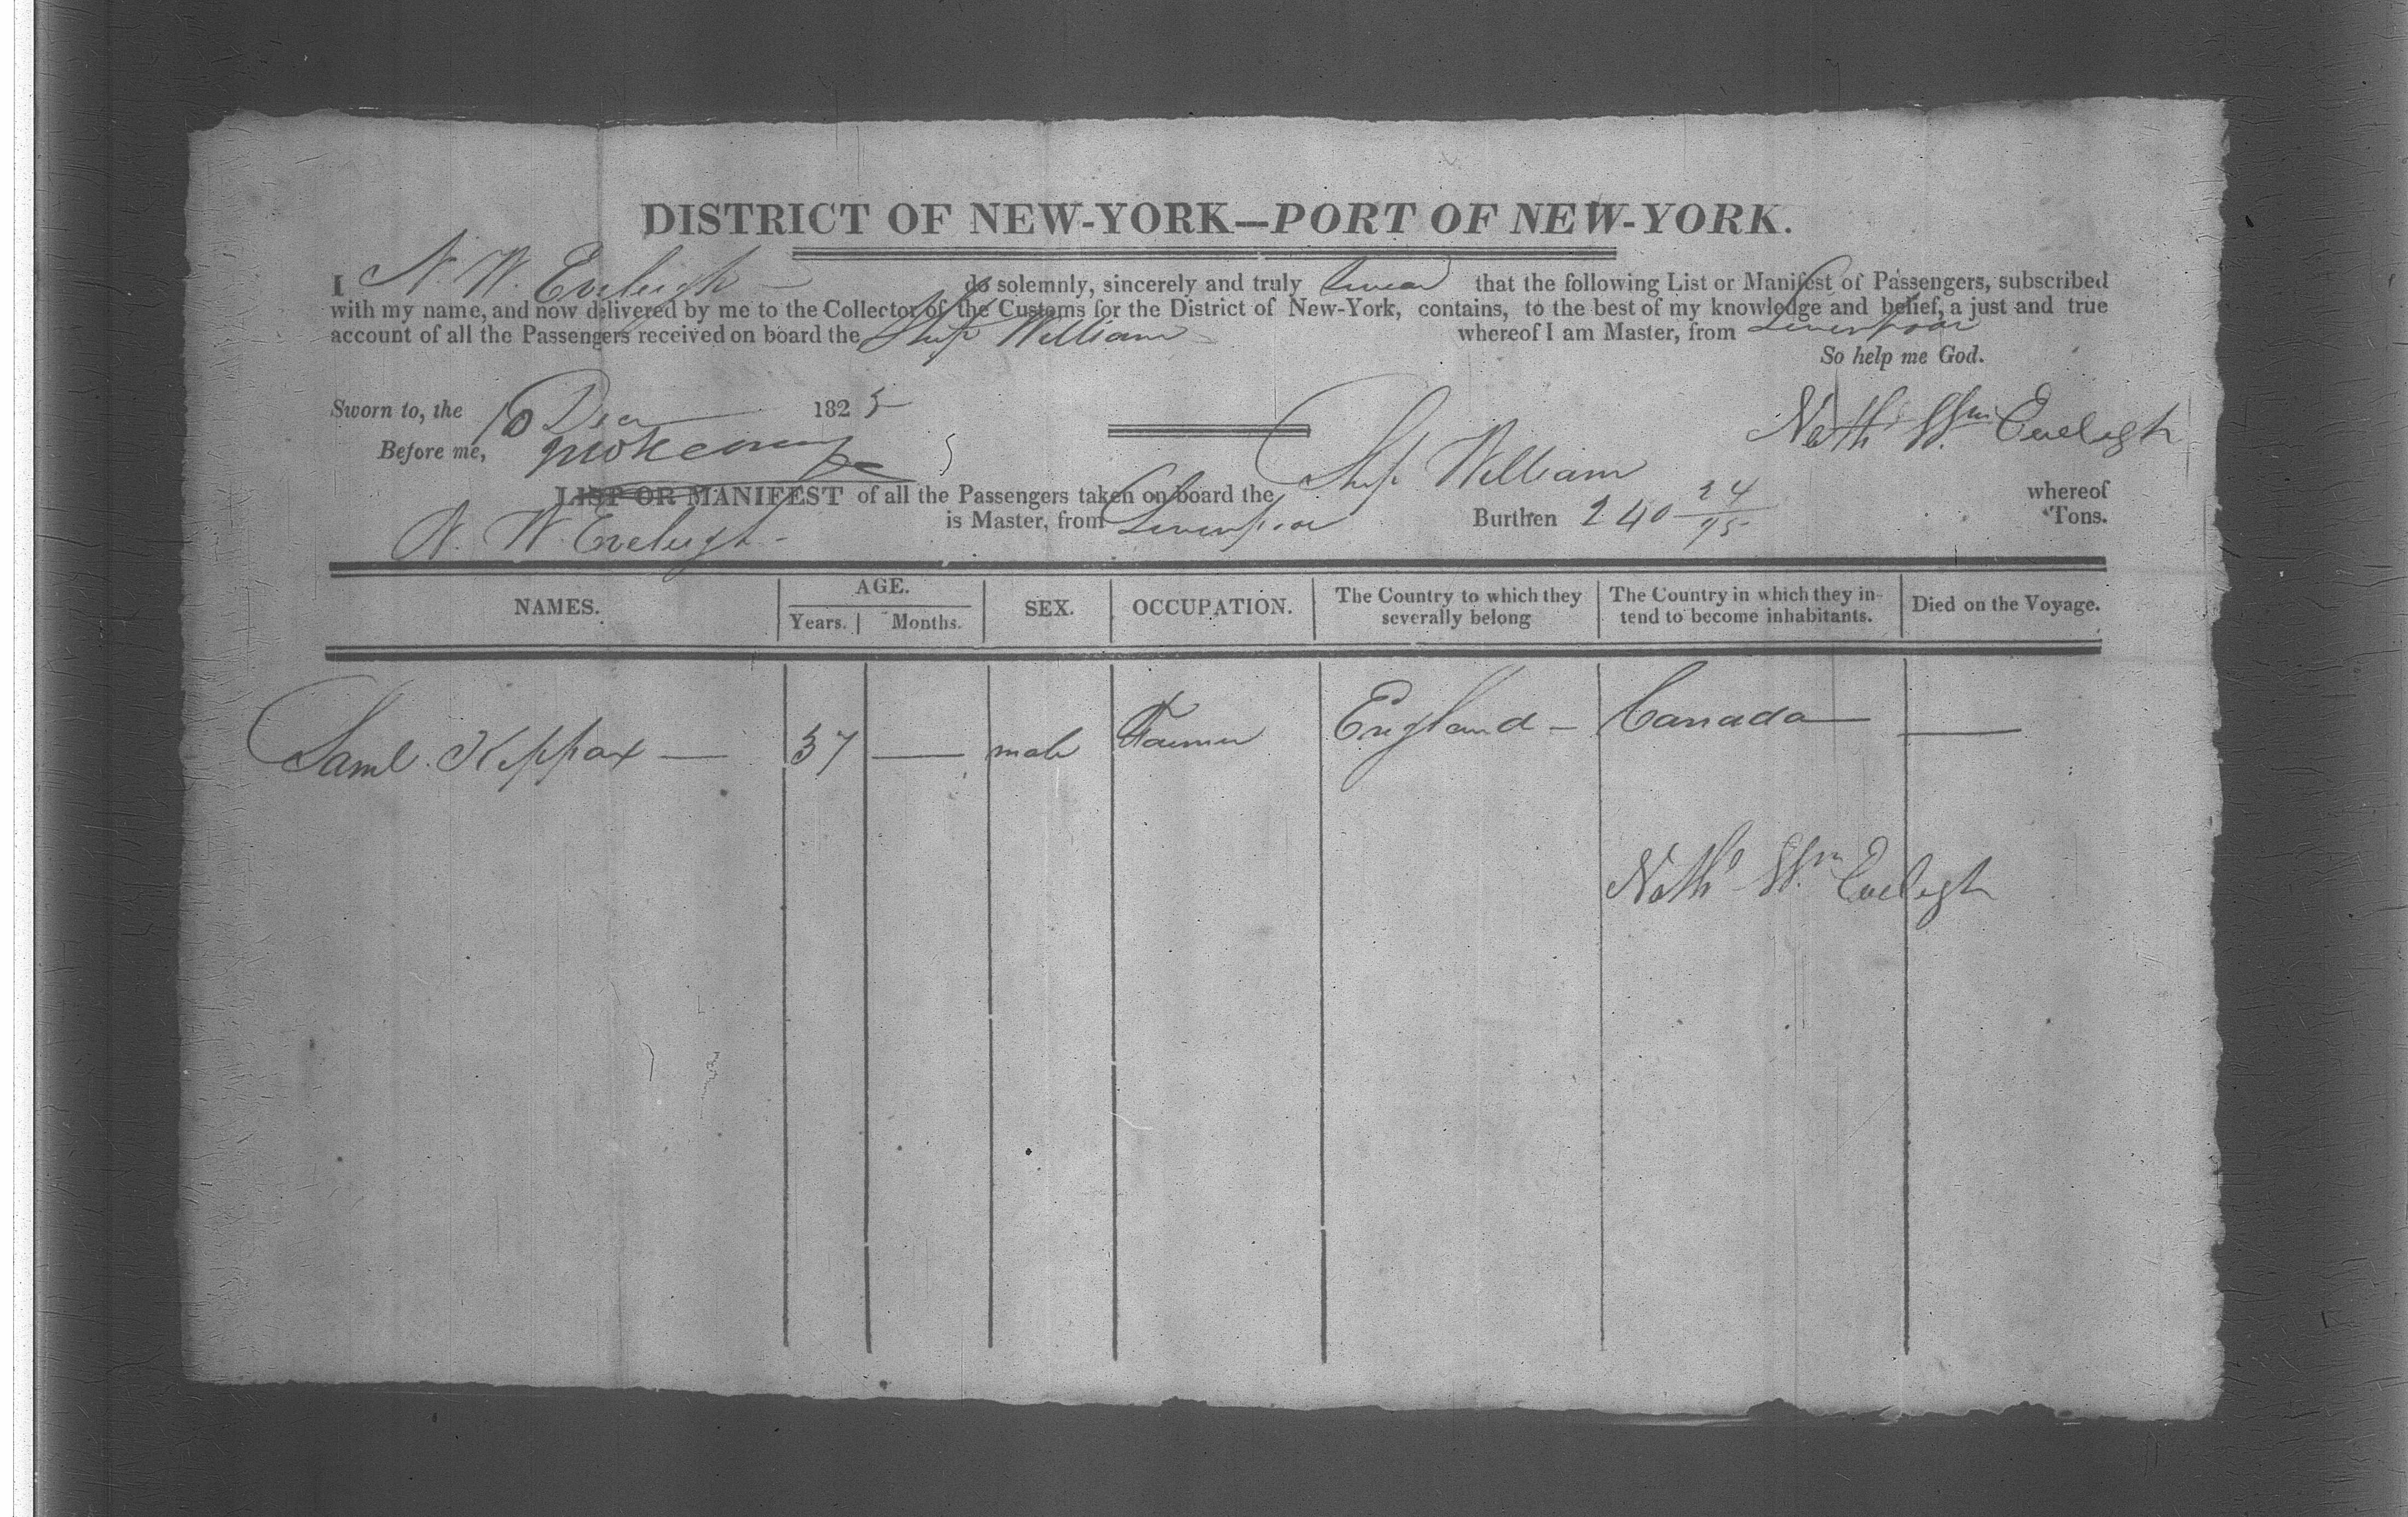 DISTRICT OF NEW-YORK—PORT OF NEW-YORK.
I N. W. Eveleigh do solemnly, sincerely and truly swear that the following List or Manifest of Passengers, subscribed
with my name, and now delivered by me to the Collector of the Customs for the District of New-York, contains, to the best of my knowledge and belief, a just and true
account of all the Passengers received on board the Ship William whereof I am Master, from Liverpool
So help me God.
Sworn to, the 10 Decr 1825
Nathl Wm Eveleigh
Before me,
LIST OR MANIFEST of all the Passengers taken on board the Ship William whereof
N. W. Eveleigh is Master, from Liverpool Burthen 240 24/95 Tons.
NAMES. AGE. Years. Months. SEX. OCCUPATION. The Country to which they severally belong The Country in which they intend to become inhabitants. Died on the Voyage.
Saml. Keppax — 37 — male Farmer England — Canada —
Nathl Wm Eveleigh